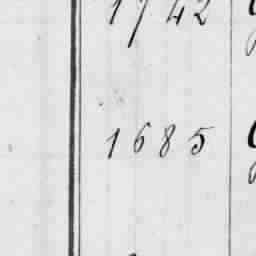 1742
1685